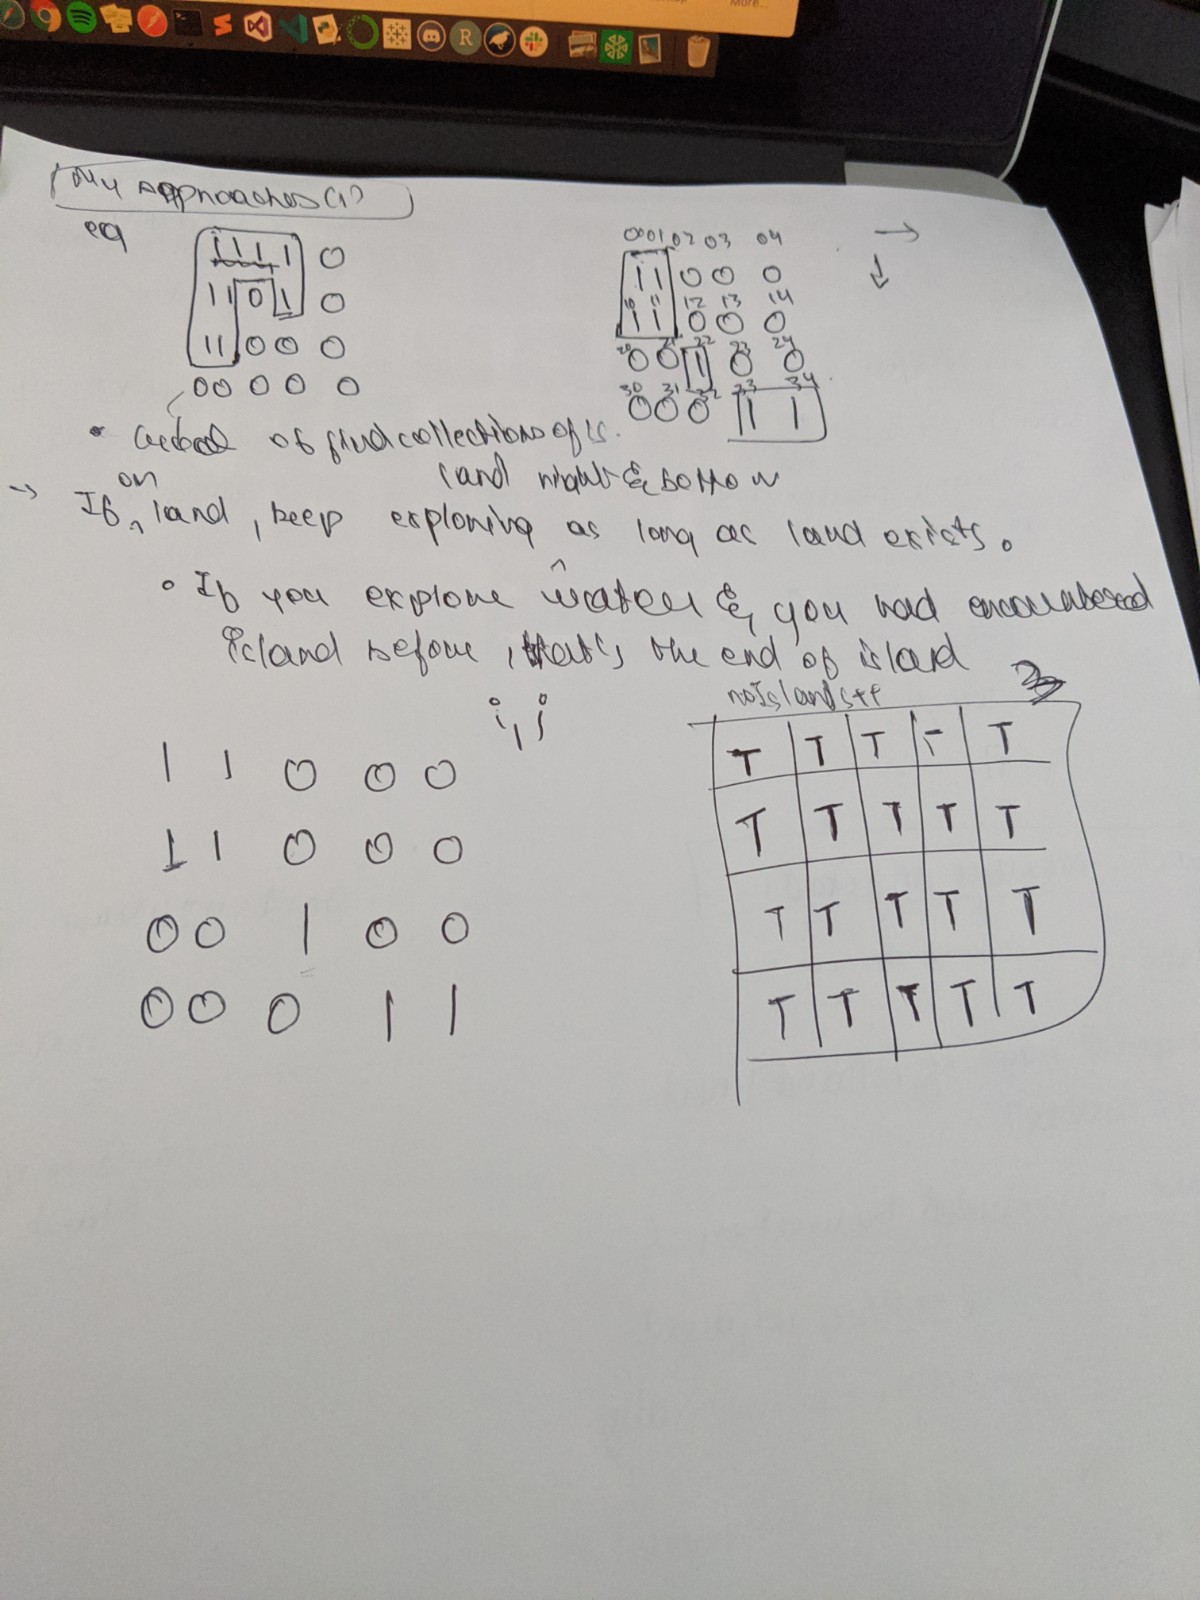 More...
R
My Approaches (1)
eg
1 1 1 1 0
1 1 0 1 0
1 1 0 0 0
0 0 0 0 0
00 01 02 03 04
1 1 0 0 0
10 11 12 13 14
1 1 0 0 0
20 21 22 23 24
0 0 1 0 0
30 31 32 33 34
0 0 0 1 1
of find collections of 1s.
land right & bottom
on
→ If land, keep exploring as long as land exists.
If you explore water & you had encountered
island before, that's the end of island
i, j
noIslands++
1 1 0 0 0
1 1 0 0 0
0 0 1 0 0
0 0 0 1 1
T T T T T
T T T T T
T T T T T
T T T T T